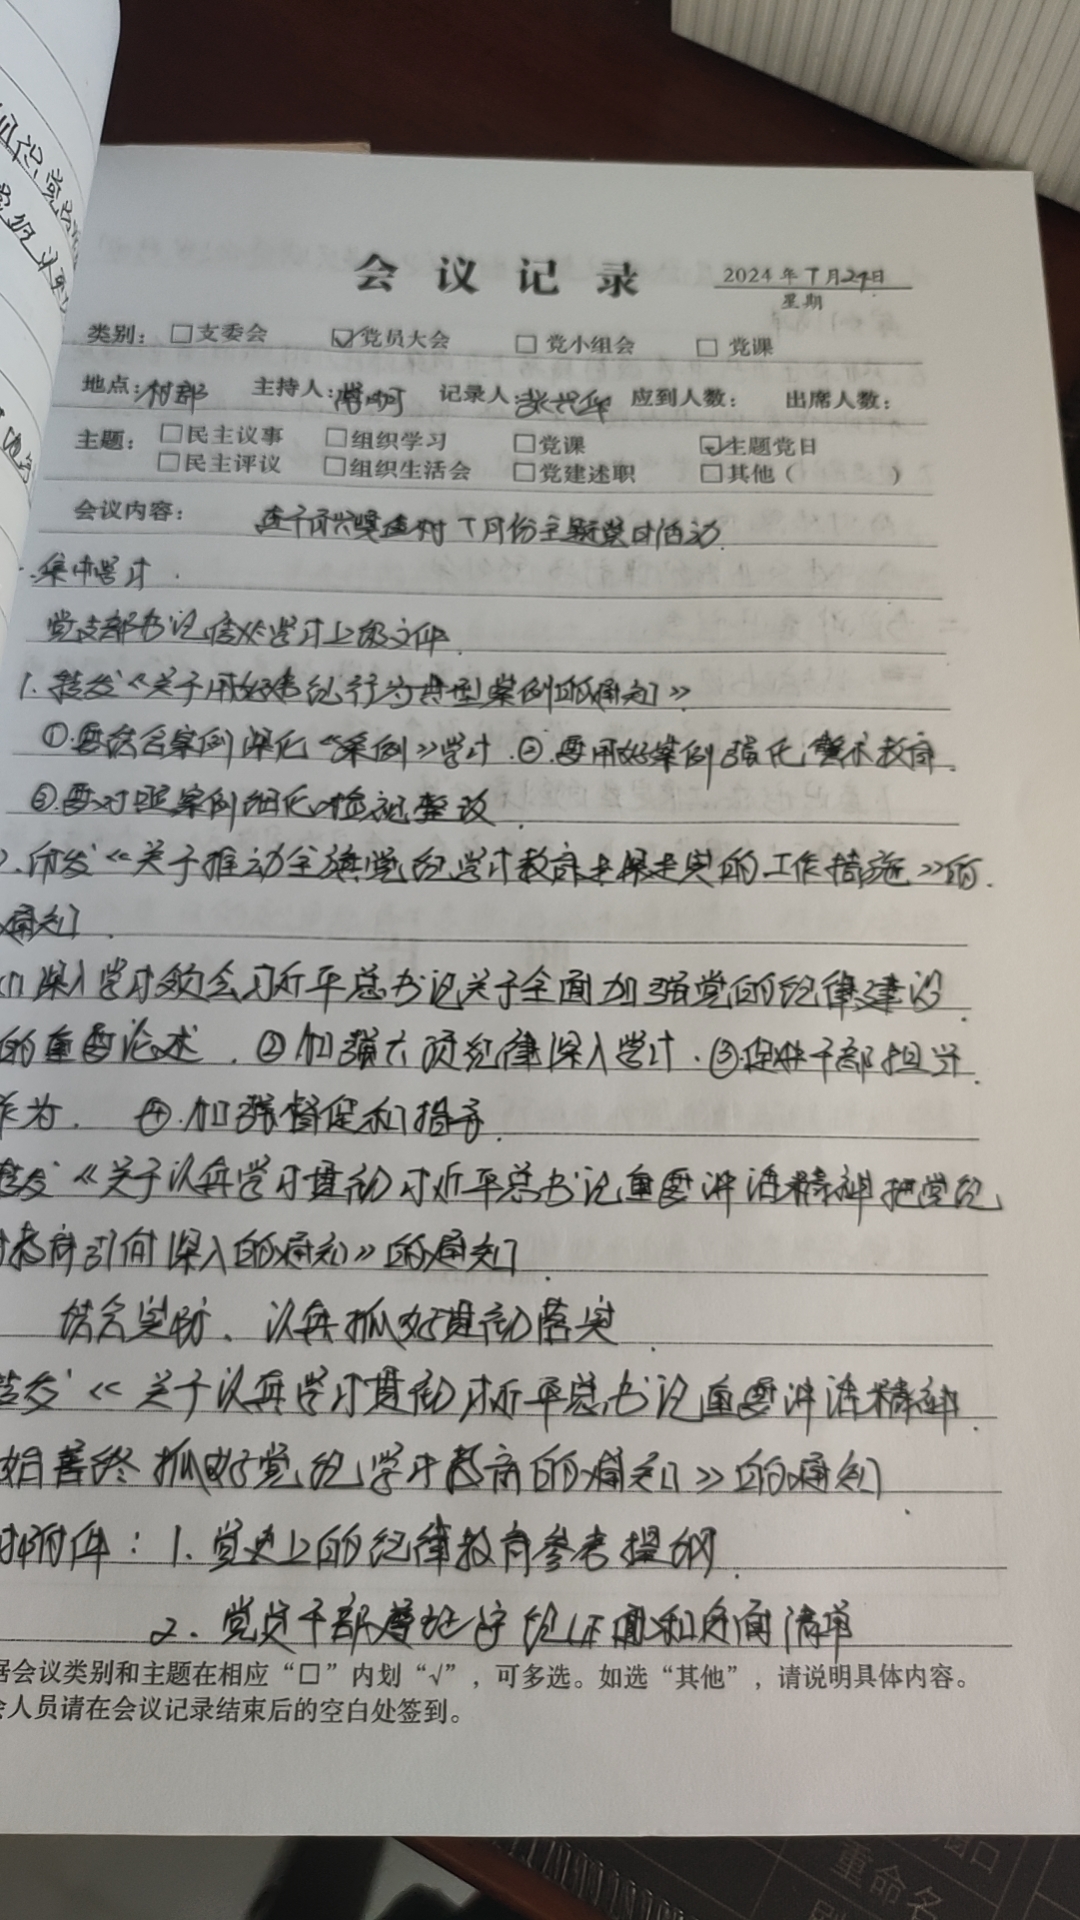 会议记录 2024年7月29日
星期
类别：□支委会 ☑党员大会 □党小组会 □党课
地点：村部 主持人： 记录人：张兴华 应到人数： 出席人数：
主题：□民主议事 □组织学习 □党课 ☑主题党日
□民主评议 □组织生活会 □党建述职 □其他（ ）
会议内容： 村7月份主题党日活动
集中学习
党支部书记 学习上级文件
1.转发《关于用好违纪行为典型案例的通知》
①.要结合案例深化《条例》学习.②.要用好案例强化警示教育.
③.要对照案例细化检视整改
2.印发《关于推动全旗党纪学习教育走深走实的工作措施》的
通知
深入学习领会习近平总书记关于全面加强党的纪律建设
的重要论述.②加强六项纪律深入学习.③.促进干部担当
作为. ④.加强督促和指导
转发《关于认真学习贯彻习近平总书记重要讲话精神把党纪
习教育引向深入的通知》的通知
结合实际、认真抓好贯彻落实
转发《关于认真学习贯彻习近平总书记重要讲话精神.
始善终抓好党纪学习教育的通知》的通知
附件：1.党史上的纪律教育参考提纲
2.党员干部遵规守纪正面和负面清单
据会议类别和主题在相应“□”内划“√”，可多选。如选“其他”，请说明具体内容。
会人员请在会议记录结束后的空白处签到。
重命名